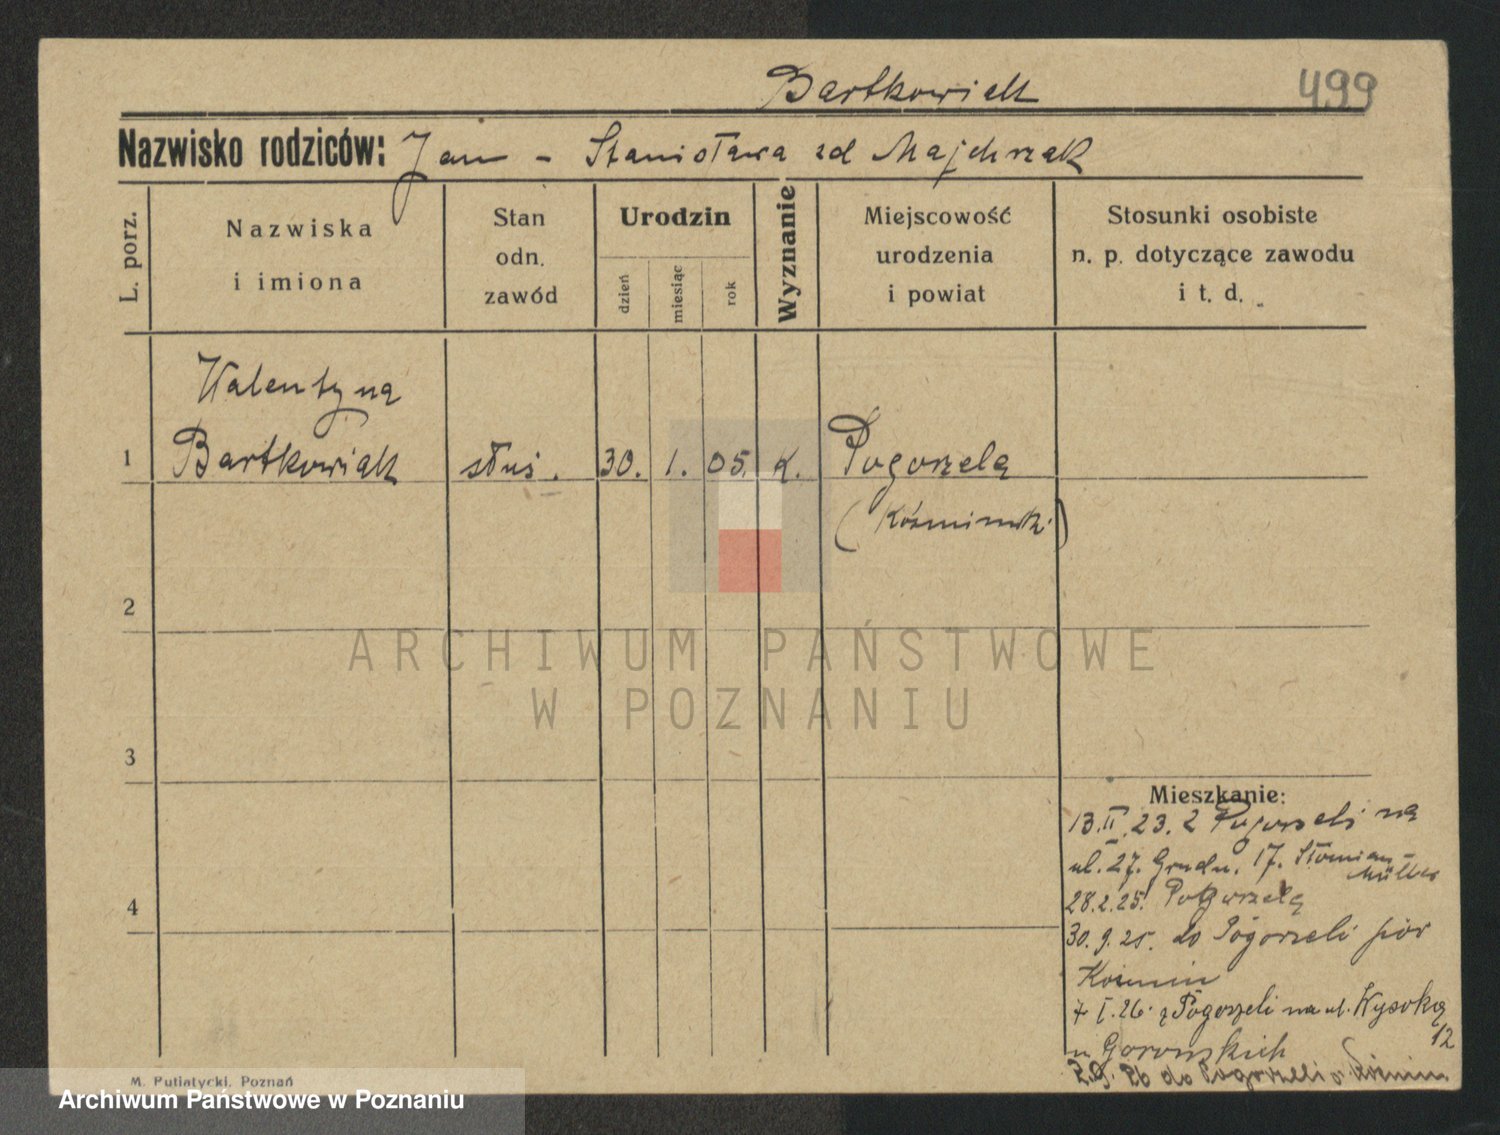 Bartkowiak 499
Nazwisko rodziców: Jan - Stanisława zd Majchrzak
L. porz.
Nazwiska
i imiona
Stan
odn.
zawód
Urodzin
dzień
miesiąc
rok
Wyznanie
Miejscowość
urodzenia
i powiat
Stosunki osobiste
n. p. dotyczące zawodu
i t. d.
Walentyna
1 Bartkowiak służ. 30. 1. 05. k. Pogorzela
(Koźmiński)
2
ARCHIWUM PAŃSTWOWE
W POZNANIU
3
Mieszkanie:
13.II.23. z Pogorzeli na
ul. 27. Grudn. 17.
28.2.25. Pogorzela
4
30.9.25. do Pogorzeli pow
Koźmin
7 I.26. z Pogorzeli na ul. Wysoką
12
u
26 do Pogorzeli p. Koźmin
M. Putiatycki, Poznań
Archiwum Państwowe w Poznaniu